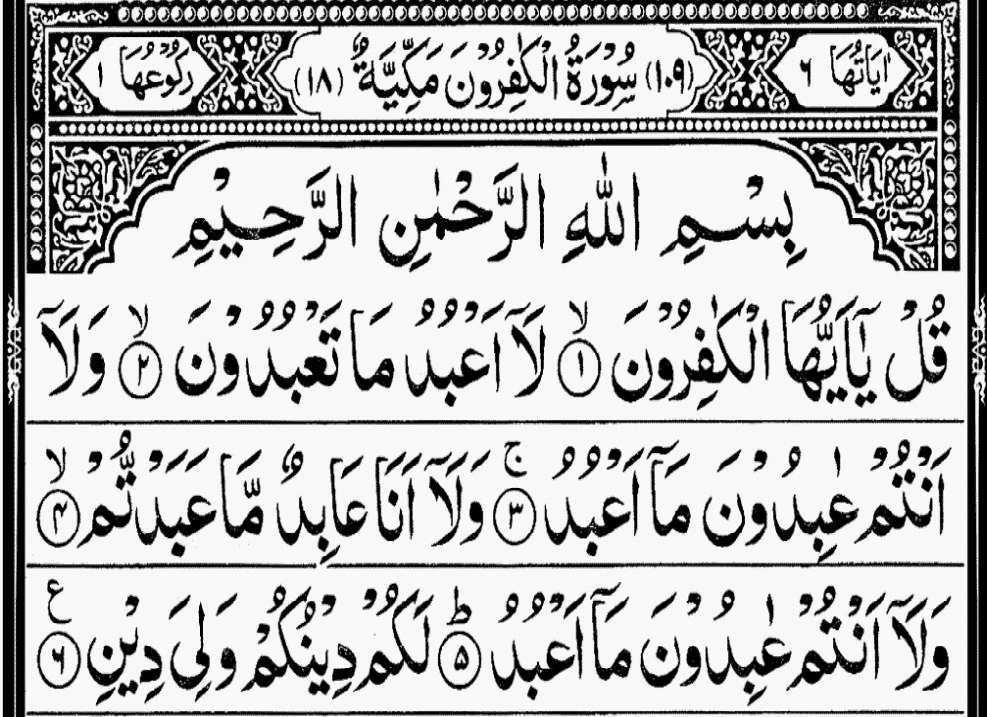 اٰيَاتُهَا ٦ (١٠٩) سُوْرَةُ الْكٰفِرُوْنَ مَكِّيَّةٌ (١٨) رُكُوْعُهَا ١
بِسْمِ اللّٰهِ الرَّحْمٰنِ الرَّحِيْمِ
قُلْ يٰٓاَيُّهَا الْكٰفِرُوْنَ ۙ﴿١﴾ لَاۤ اَعْبُدُ مَا تَعْبُدُوْنَ ۙ﴿٢﴾ وَلَاۤ
اَنْتُمْ عٰبِدُوْنَ مَاۤ اَعْبُدُ ۚ﴿٣﴾ وَلَاۤ اَنَا عَابِدٌ مَّا عَبَدْتُّمْ ۙ﴿۴﴾
وَلَاۤ اَنْتُمْ عٰبِدُوْنَ مَاۤ اَعْبُدُ ؕ﴿۵﴾ لَكُمْ دِيْنُكُمْ وَلِىَ دِيْنِ ﴿٦﴾ ع